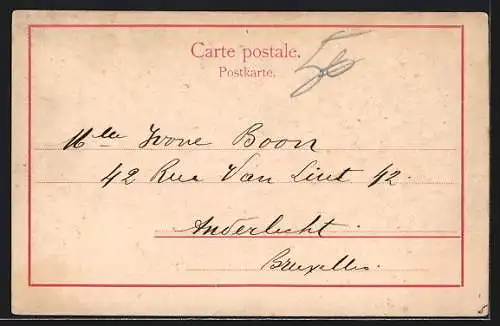 Carte postale.
Postkarte.
Mlle Ivone Boon
42 Rue Van Lint 42.
Anderlecht.
Bruxelles.